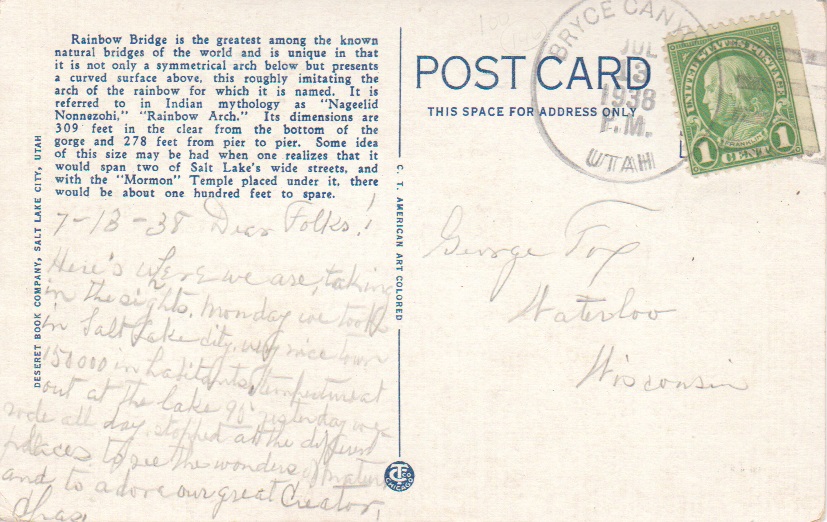 Rainbow Bridge is the greatest among the known
natural bridges of the world and is unique in that
it is not only a symmetrical arch below but presents
a curved surface above, this roughly imitating the
arch of the rainbow for which it is named. It is
referred to in Indian mythology as "Nageelid
Nonnezohi," "Rainbow Arch." Its dimensions are
309 feet in the clear from the bottom of the
gorge and 278 feet from pier to pier. Some idea
of this size may be had when one realizes that it
would span two of Salt Lake's wide streets, and
with the "Mormon" Temple placed under it, there
would be about one hundred feet to spare.
7-13-38 Dear Folks!
Here's where we are, taking
in the sights. Monday we took
in Salt Lake city. very nice town
150000 inhabitants,
out at the lake 90° yesterday we
rode all day. stopped at the different
places to see the wonders of nature
and to adore our great Creator,
Chas.
DESERET BOOK COMPANY, SALT LAKE CITY, UTAH
C. T. AMERICAN ART COLORED
CHICAGO
POST CARD
THIS SPACE FOR ADDRESS ONLY
BRYCE CANY
JUL
13
1938
P.M.
UTAH
UNITED STATES POSTAGE
FRANKLIN
1 CENT 1
George Fox
Waterloo
Wisconsin